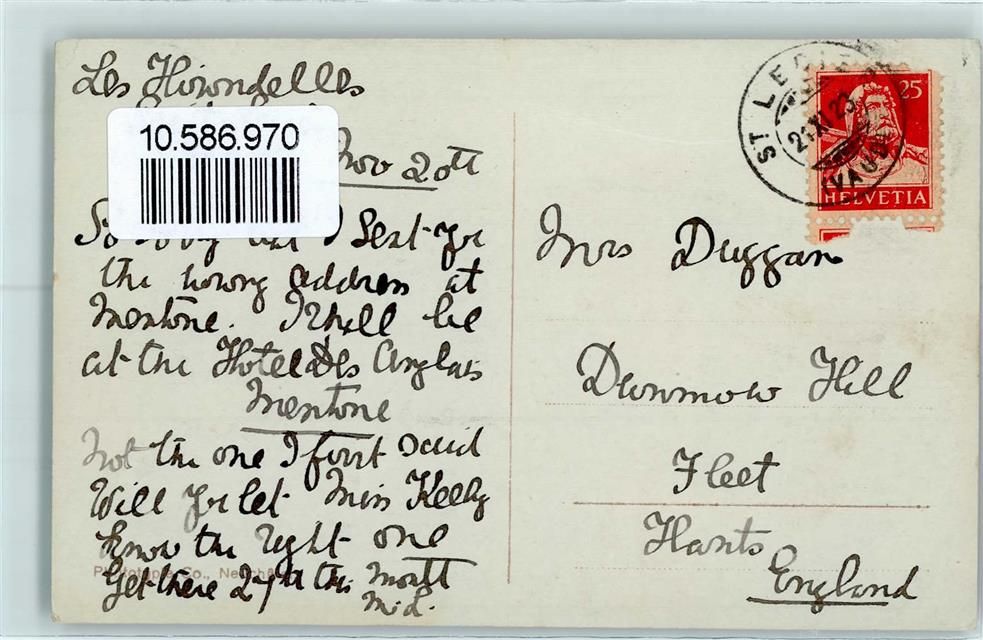 Les Hirondelles
10.586.970
Nov 20th
So sorry that I sent you
the wrong address at
Mentone. I shall be
at the Hotel Des Anglais
Mentone
Not the one I first said
Will you let Miss Kelly
know the right one
Get there 27th this month
Phototypie Co., Neuchâtel
ST LEGIER
21.XI.23
(VAUD)
25
HELVETIA
Mrs Duggan
Dunmow Hill
Fleet
Hants
England